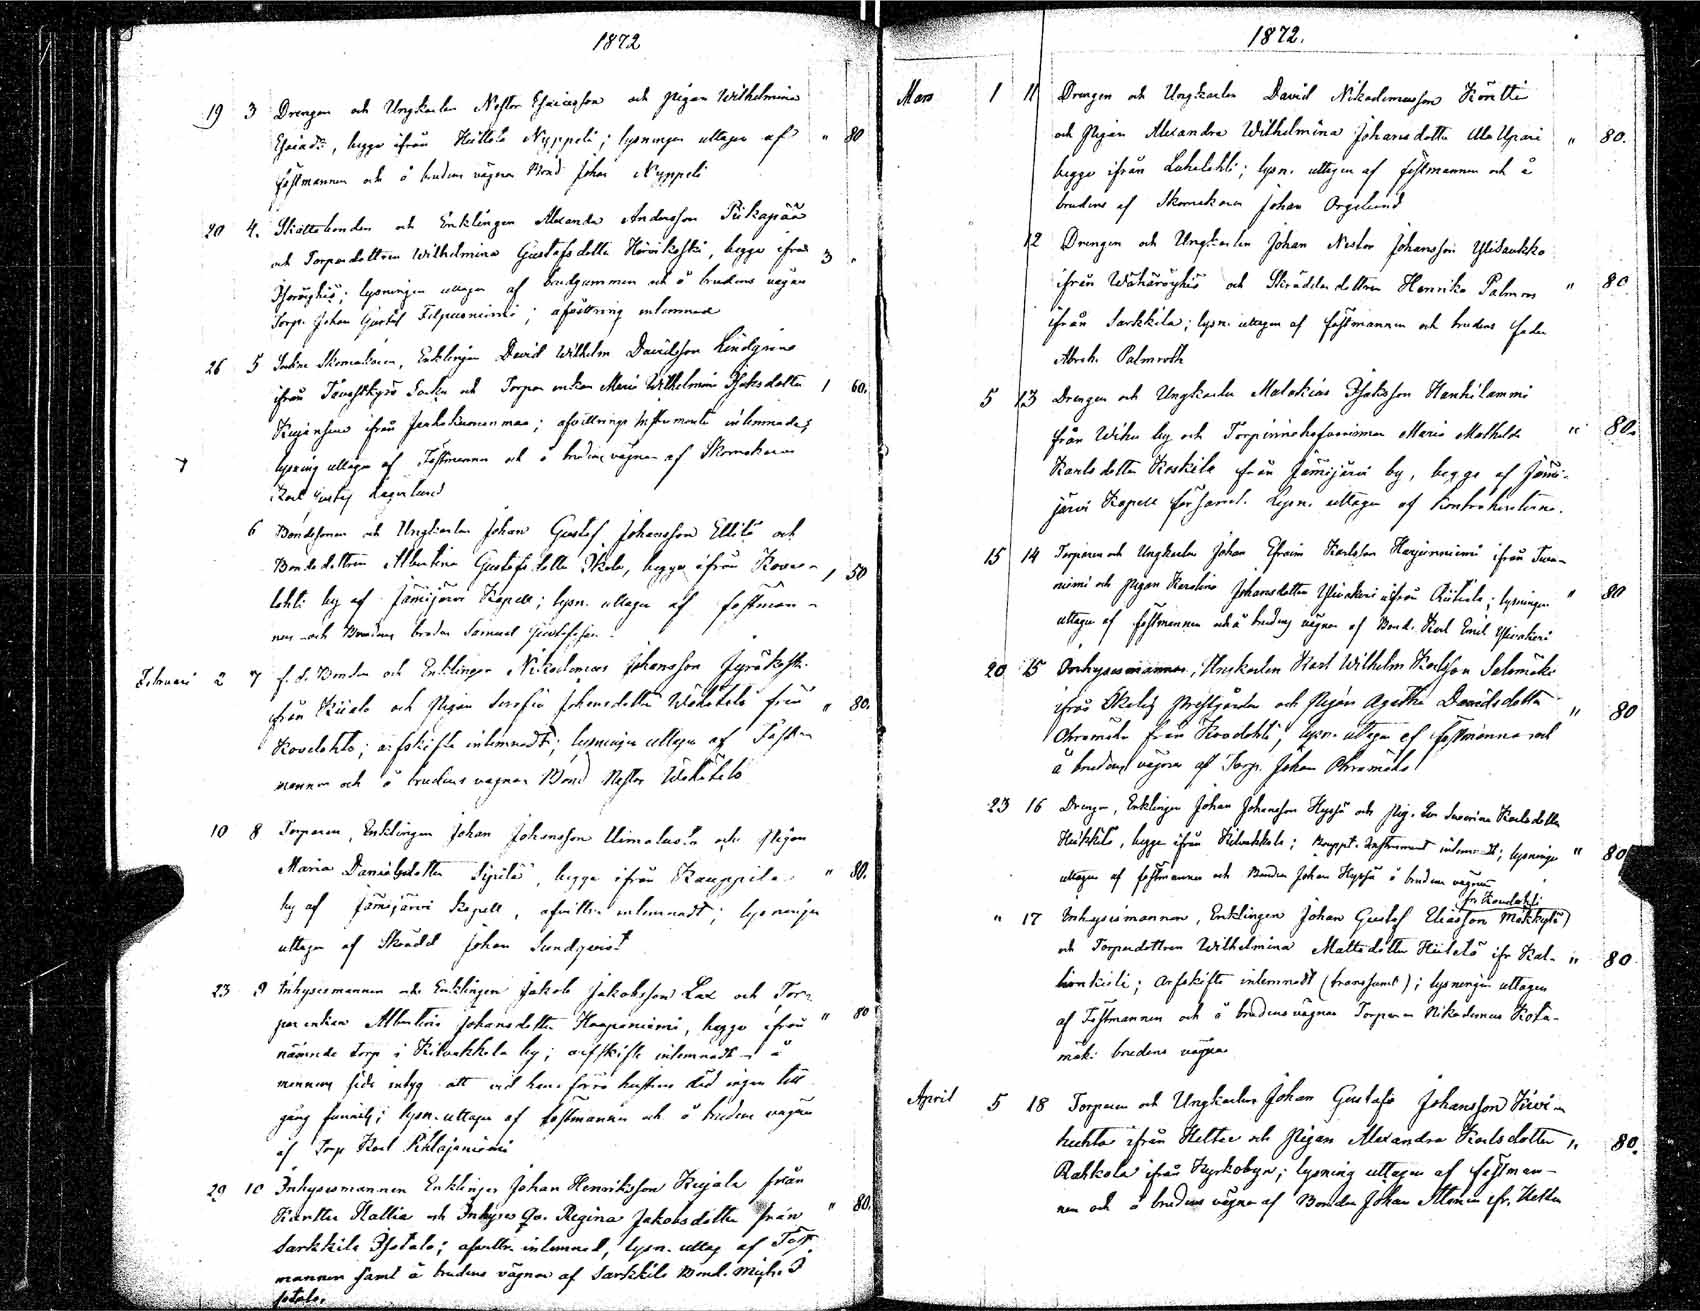 1872
19 3 Drengen och Ungkarlen Nestor Esaiasson och Pigan Wilhelmina
Esaiasd:r, begge ifrån Nyppeli; lysningen uttagen af " 80
fästmannen och å brudens vägnar Bond Johan Nyppeli
20 4. Skattebonden och Enklingen Alexander Andersson Piikapää
och Torparedottren Wilhelmina Gustafsdotter, begge ifrån 3 "
lysningen uttagen af brudgummen och å brudens vägnar
Torp. Johan Gustaf; afvittring inlemnad
26 5 Sockne Skomakaren, Enklingen David Wilhelm Davidsson Lindgren
ifrån Tavastkyrö Socken och Torpare enkan Maria Wilhelmina Isaksdotter 1 60.
ifrån; afvittrings Instrumente inlemnades
lysning uttagen af Fästmannen och å brudens vägnar af Skomakaren
Karl Gustaf Lagerlund
6 Bondesonen och Ungkarlen Johan Gustaf Johansson Ellilä och
Bondedottren Albertina Gustafsdotter Skala, begge ifrån Kowe- 1 50
lahti by af Jämijärvi Kapell; lysn. uttagen af fästman-
nen och Brudens broder Samuel Gustafsson.
Februari 2 7 f. d. Bonden och Enklingen Nikodemus Johansson Jyräkoski
ifrån och Pigan Serafia Johansdotter Wähätalo från " 80.
Kovelahti; arfskifte inlemnadt; lysningen uttagen af Fäst-
mannen och å brudens vägnar Bond Nestor Wähätalo
10 8 Torparen, Enklingen Johan Johansson och Pigan
Maria Danielsdotter Sipilä, begge ifrån Kauppila " 80.
by af Jämijärvi Kapell, afvittr. inlemnadt; lysningen
uttagen af Skrädd Johan Sundqvist
23 9 Inhysesmannen och Enklingen Jakob Jakobsson Lax och Tor-
pare enkan Albertina Johansdotter Haapaniemi, begge ifrån " 80
nämnde torp i Kilvakkala by; arfskifte inlemnadt å
mannens sida intyg att vid hans förra hustrus död ingen till-
gång funnits; lysn. uttagen af fästmannen och å brudens vägnar
af Torp Karl Pihlajaniemi
29 10 Inhysesmannen Enklingen Johan Henriksson Kujala från
Kallia och Inhyses Qv. Regina Jakobsdotter från " 80.
Sarkkila Isotalo; afvittr. inlemnad, lysn. uttag af Fäst-
mannen samt å brudens vägnar af Sarkkila Bond. Mich. I
sotalo.
1872.
Mars 1 11 Drengen och Ungkarlen David Nikodemusson Köntti
och Pigan Alexandra Wilhelmina Johansdotter " 80.
begge ifrån; lysn. uttagen af fästmannen och å
brudens af Skomakaren Johan Orgelund
12 Drengen och Ungkarlen Johan Nestor Johansson Ylisaukko
ifrån Wähäröyhiö och Skräddaredottren Henrika Palmroos " 80
ifrån Sarkkila; lysn. uttagen af fästmannen och brudens fader
Abrah. Palmroth
5 13 Drengen och Ungkarlen Malakias Isaksson Hanhilammi
från Wihu by och Torparinnehafvarinnan Maria Mathilda " 80.
Karlsdotter Koskela ifrån Jämijärvi by, begge af Jämi-
järvi Kapell församl. Lysn. uttagen af Kontrahenterne.
15 14 Torparen och Ungkarlen Johan Efraim Karlsson Harjunniemi ifrån Tura-
niemi och Pigan Karolina Johansdotter Yliviikeri ifrån Riitiala; lysningen " 80
uttagen af fästmannen och å brudens vägnar af Bond. Karl Emil
20 15 Inhysesmannen, Ungkarlen Karl Wilhelm Karlsson Salomäki
ifrån Ikalis Prestgården och Pigan Agatha Davidsdotter " 80
från Kovelahti; lysn. uttagen af fästmannen och
å brudens vägnar af Torp. Johan
23 16 Drengen, Enklingen Johan Johansson Hyssä och Pig. Eva Susanna Karlsdotter
Heikkilä, begge ifrån Kilvakkala; Bouppt. Instrument inlemnadt; lysningen " 80
uttagen af fästmannen och Bonden Johan Hyssä å brudens vägnar
fr. Kovelahti
" 17 Inhysesmannen, Enklingen Johan Gustaf Eliasson Mäkkylä
och Torparedottren Wilhelmina Mattsdotter Hietalä ifr. Kal- " 80
; arfskifte inlemnadt (transsumt); lysningen uttagen
af Fästmannen och å brudens vägnar Torparen Nikodemus Kota-
mäki brudens vägnar
April 5 18 Torparen och Ungkarlen Johan Gustafs Johansson Kivi-
huhta ifrån Heltee och Pigan Alexandra Karlsdotter " 80.
Rahkola ifrån Kyrkobyn; lysning uttagen af fästman-
nen och å brudens vägnar af Bonden Johan Alanen ifr. Heltee